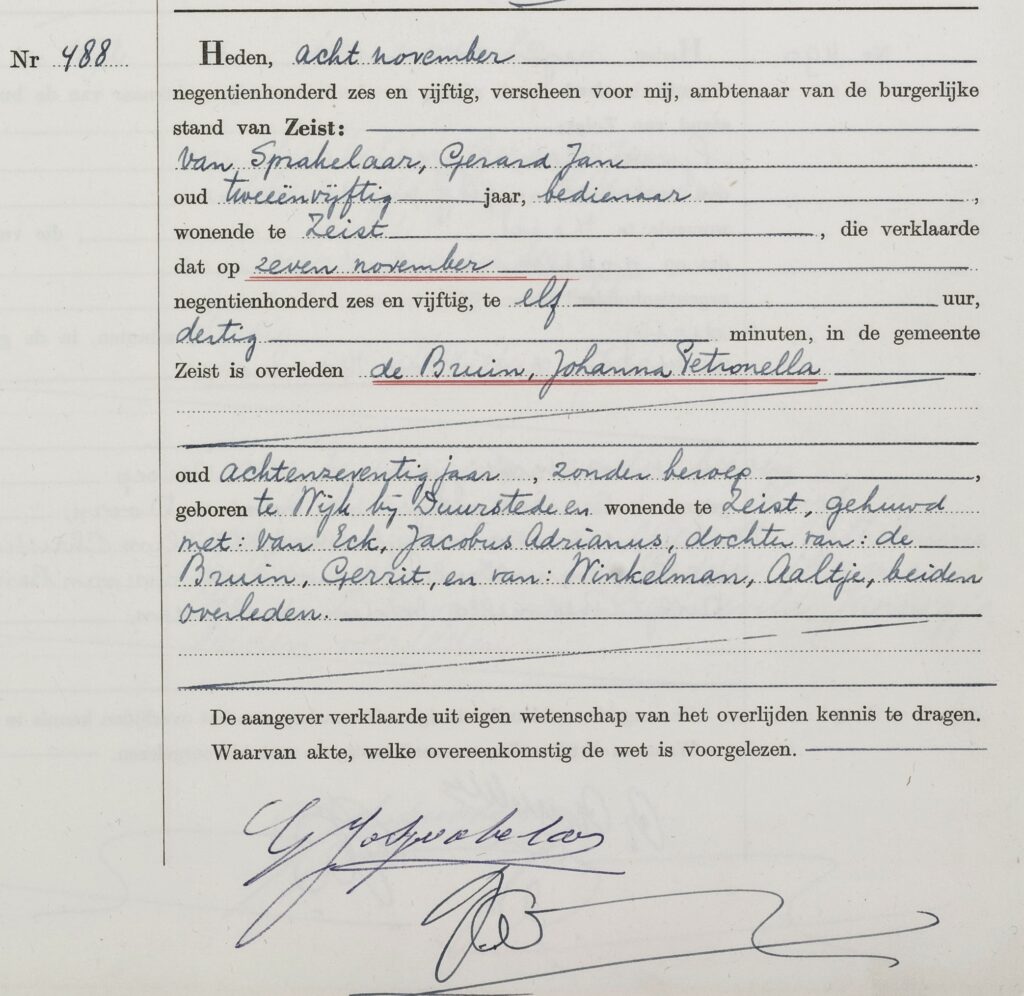 Nr 488
Heden, acht november
negentienhonderd zes en vijftig, verscheen voor mij, ambtenaar van de burgerlijke
stand van Zeist:
van Sprakelaar, Gerard Jan
oud tweeënvijftig jaar, bedienaar ,
wonende te Zeist , die verklaarde
dat op zeven november
negentienhonderd zes en vijftig, te elf uur,
dertig minuten, in de gemeente
Zeist is overleden de Bruin, Johanna Petronella
oud achtenzeventig jaar , zonder beroep ,
geboren te Wijk bij Duurstede en wonende te Zeist, gehuwd
met: van Eck, Jacobus Adrianus, dochter van: de
Bruin, Gerrit, en van: Winkelman, Aaltje, beiden
overleden.
De aangever verklaarde uit eigen wetenschap van het overlijden kennis te dragen.
Waarvan akte, welke overeenkomstig de wet is voorgelezen.